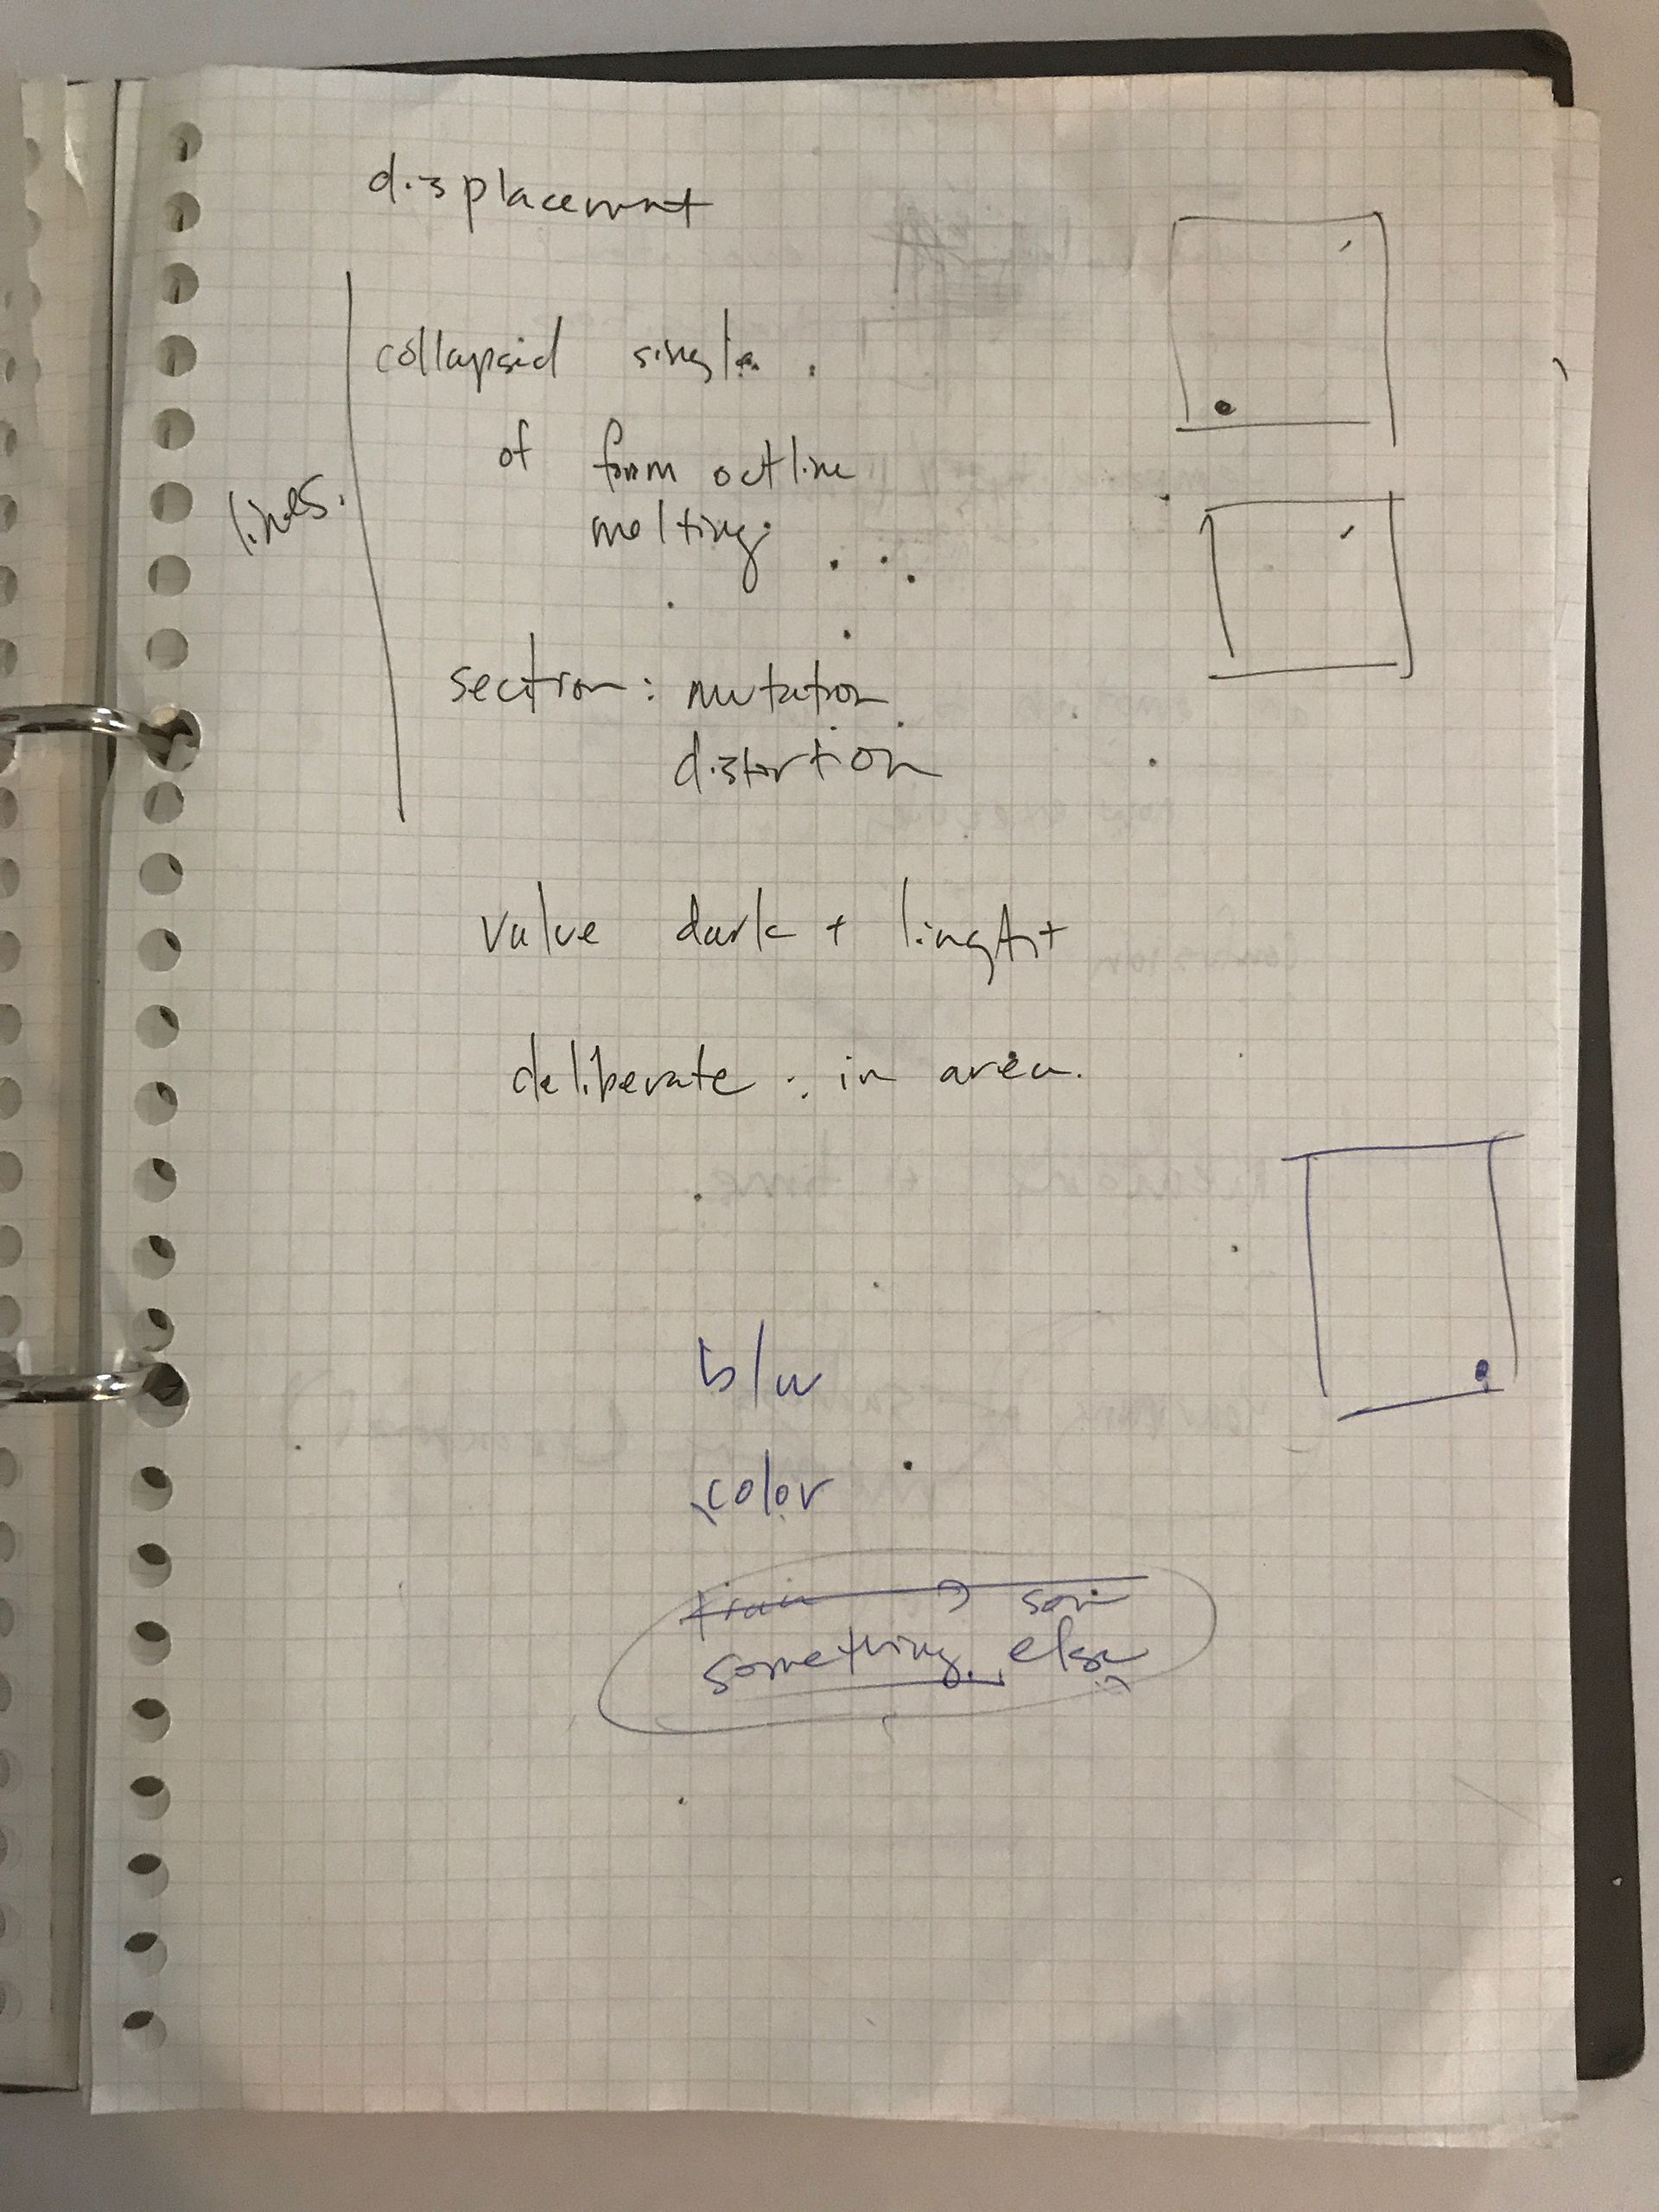 displacement
collapsid single.
of form outline
melting
lines.
section: mutation
distortion
value dark + linght
deliberate : in area.
b/w
color
something else